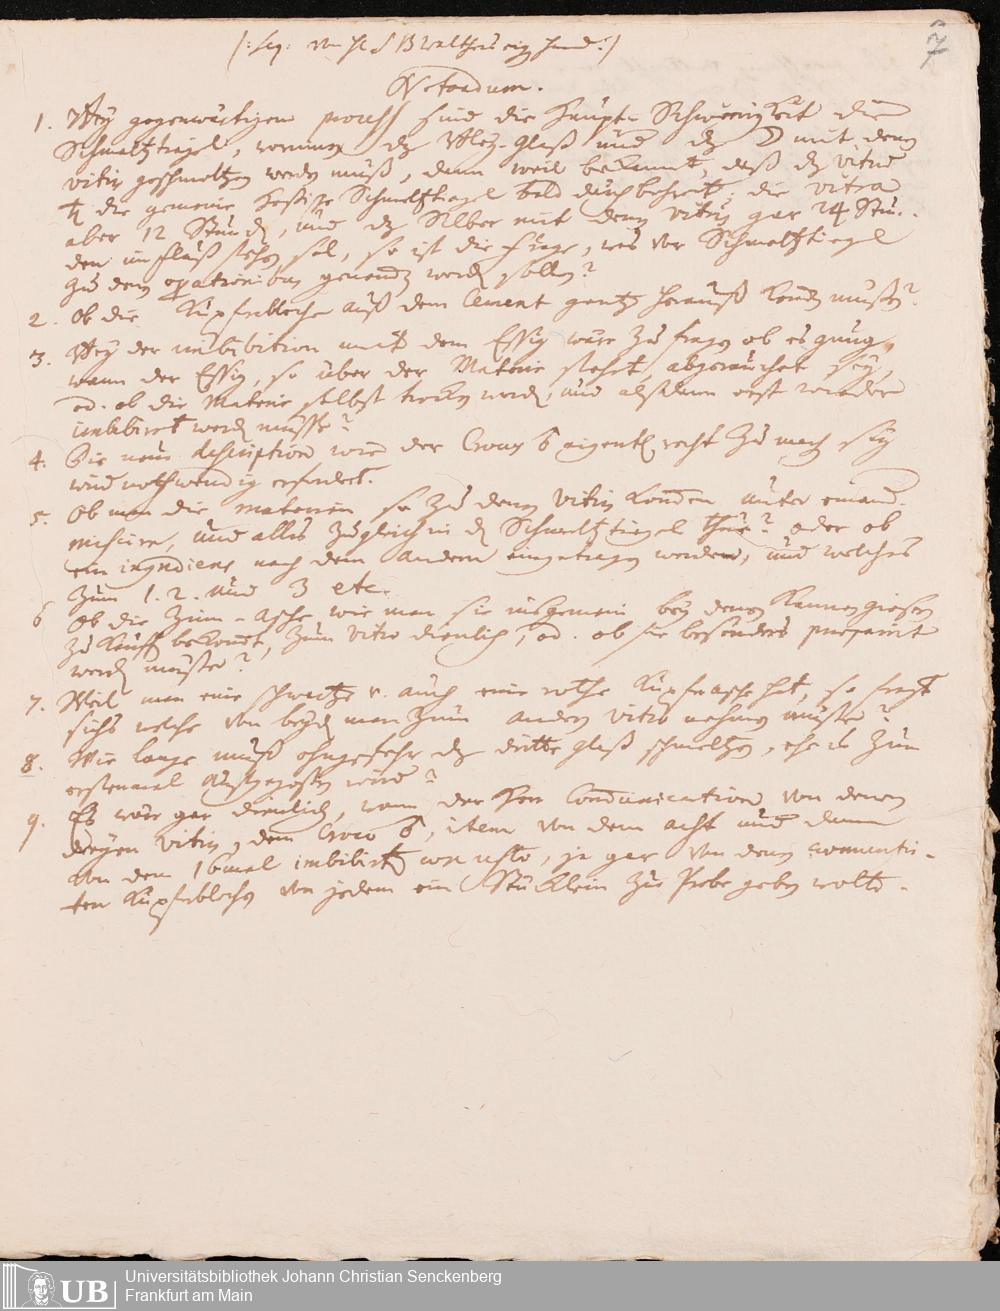 7
Notandum.
1. Bey gegenwärtigem process sind die Haupt-Schwürigkeit die
Schmeltztiegel, worinnen dz Bley-Glaß und dz ☽ mit dem
vitris geschmeltzen werden muß, dann weil bekannt, daß dz vitrum
♄ die gemeine Heßische Schmeltztiegel bald durchbohret, die vitra
aber 12 Stunden, und dz Silber mit denen vitris gar 24 Stun-
den im Fluß stehen sol, so ist die Frage, was vor Schmeltztiegel
zu denen operationibus genandt werden sollen?
2. Ob die Kupferbleche auß dem Cement gantz herauß kommen müßen?
3. Bey der imbibition mit dem Essig wäre zu fragen ob es genug,
wann der Essig, so über der Materie stehet abgerauchet sey,
od. ob die Materie selbst trocken werden, und alsdann erst wieder
imbibiret werden müsste?
4. Die neue description wie der Crocus eigentl. recht zu machen sey
wird nothwendig erfordert.
5. Ob man die materien so zu denen vitris kommen unter einand.
misciren, und alles zugleich in den Schmeltztiegel thue? oder ob
ein ingrediens nach dem andern eingetragen werden, und welches
zum 1. 2. und 3 etc.
6 Ob die Zinn-Asche wie man sie insgemein bey denen Kannengießern
zu Kauff bekommt, zum vitro dienlich, od. ob sie besonders præparirt
werden müste?
7. Weil man eine schwartze u. auch eine rothe Kupferasche hat, so fragt
sichs welche von beyden man zum andern vitro nehmen müste?
8. Wie lange muß ohngefehr dz dritte glaß schmeltzen, ehe es zum
erstenmal außgegossen wird?
9. Es wäre gar dienlich, wann der Herr Communication von denen
dreyen vitris, dem Croco, item von dem acht und dann
von dem 16mal imbibirten, ja gar von denen cementir-
ten Kupferblechen von jedem ein Stücklein zur Probe geben wolte.
UB
Universitätsbibliothek Johann Christian Senckenberg
Frankfurt am Main